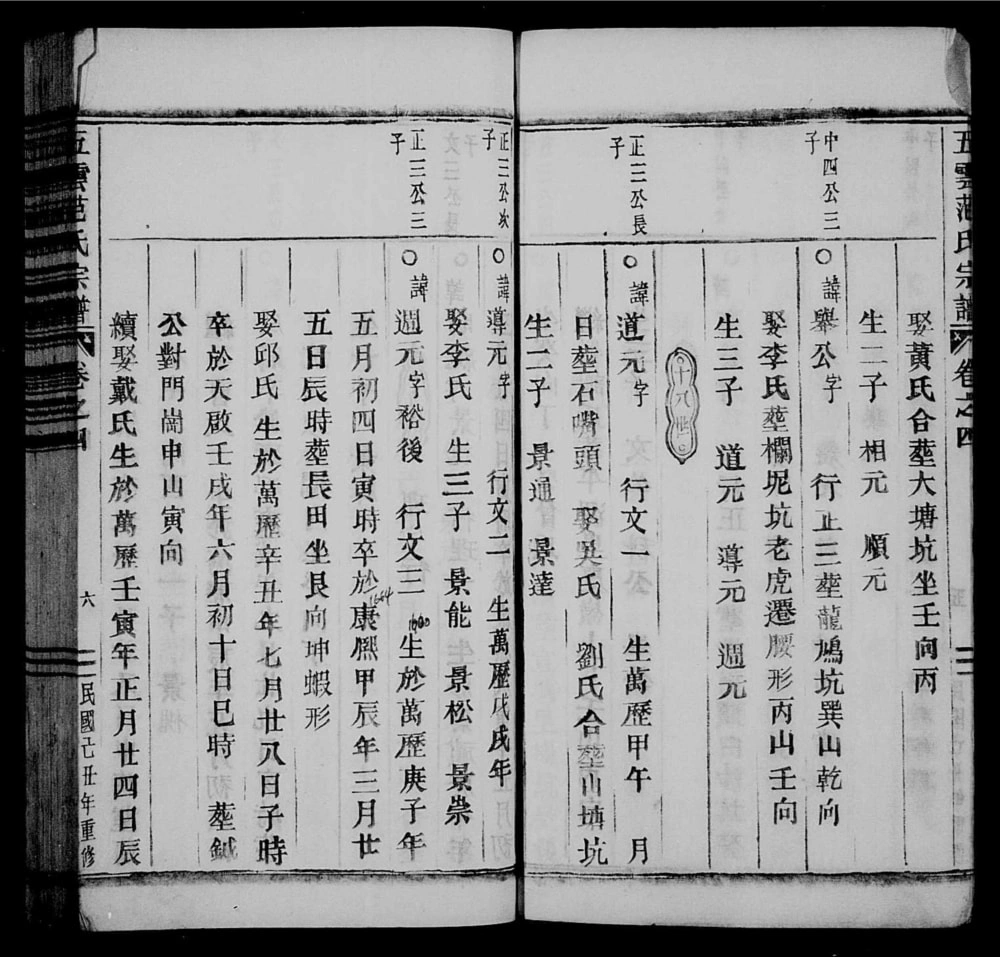 五雲范氏宗譜
卷之四
娶黃氏合塟大塘坑坐壬向丙
生二子 相元 順元
中四公三子
○諱舉公字 行正三塟龍鳩坑巽山乾向
娶李氏塟欄坭坑老虎遷腰形丙山壬向
生三子 道元 導元 週元
十八世
正三公長子
○諱道元字 行文一 生萬歷甲午 月
日塟石嘴頭 娶吳氏 劉氏合塟山塘坑
生二子 景通 景達
正三公次子
○諱導元字 行文二 生萬歷戊戌年
娶李氏 生三子 景能 景松 景崇
正三公三子
○諱週元字裕後 行文三 1600 生於萬歷庚子年
五月初四日寅時卒於康熙甲辰年三月廿
1664
五日辰時塟長田坐艮向坤蝦形
娶邱氏 生於萬歷辛丑年七月廿八日子時
卒於天啟壬戌年六月初十日巳時 塟鉞
公對門崗申山寅向
續娶戴氏生於萬歷壬寅年正月廿四日辰
五雲范氏宗譜
卷之四
六
民國己丑年重修